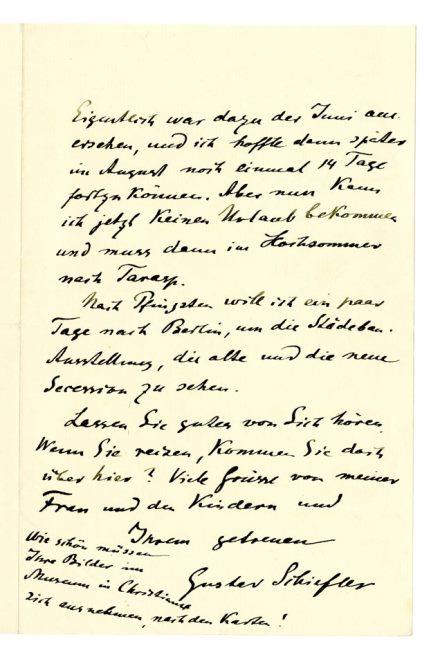 Eigentlich war dazu der Juni aus-
ersehen, und ich hoffte dann später
im August noch einmal 14 Tage
fortzukönnen. Aber nun kann
ich jetzt keinen Urlaub bekommen
und muss dann im Hochsommer
nach Tarasp.
Nach Pfingsten will ich ein paar
Tage nach Berlin, um die Städtebau-
Ausstellung, die alte und die neue
Secession zu sehen.
Lassen Sie gutes von Sich hören.
Wenn Sie reizen, kommen Sie doch
über hier? Viele Grüsse von meiner
Frau und den Kindern und
Ihrem getreuen
Gustav Schiefler
Wie schön müssen
Ihre Bilder im
Museum in Christiania
sich ausnehmen, nach den Karten!